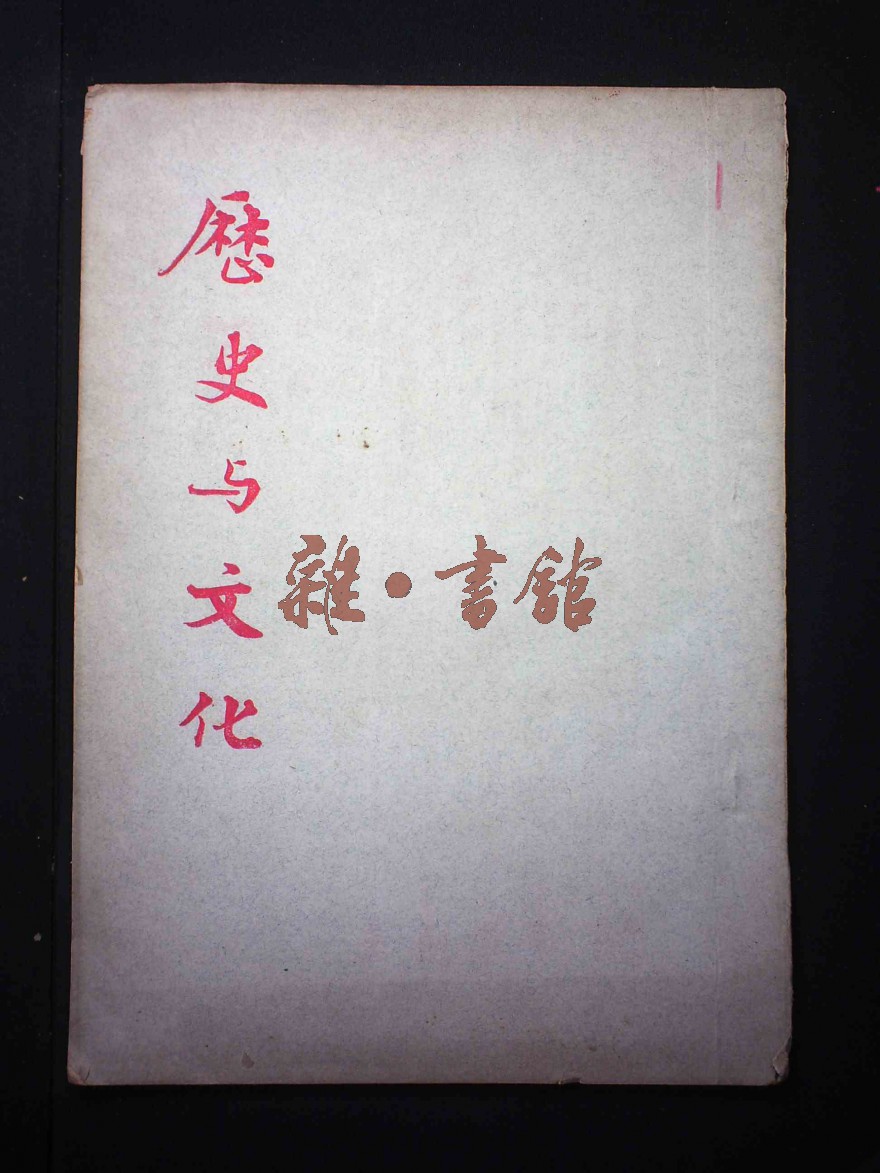 歷史与文化
雜·書館